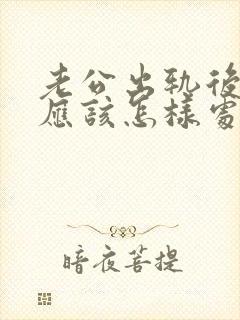 老公出轨後
應該怎樣處
暗夜菩提